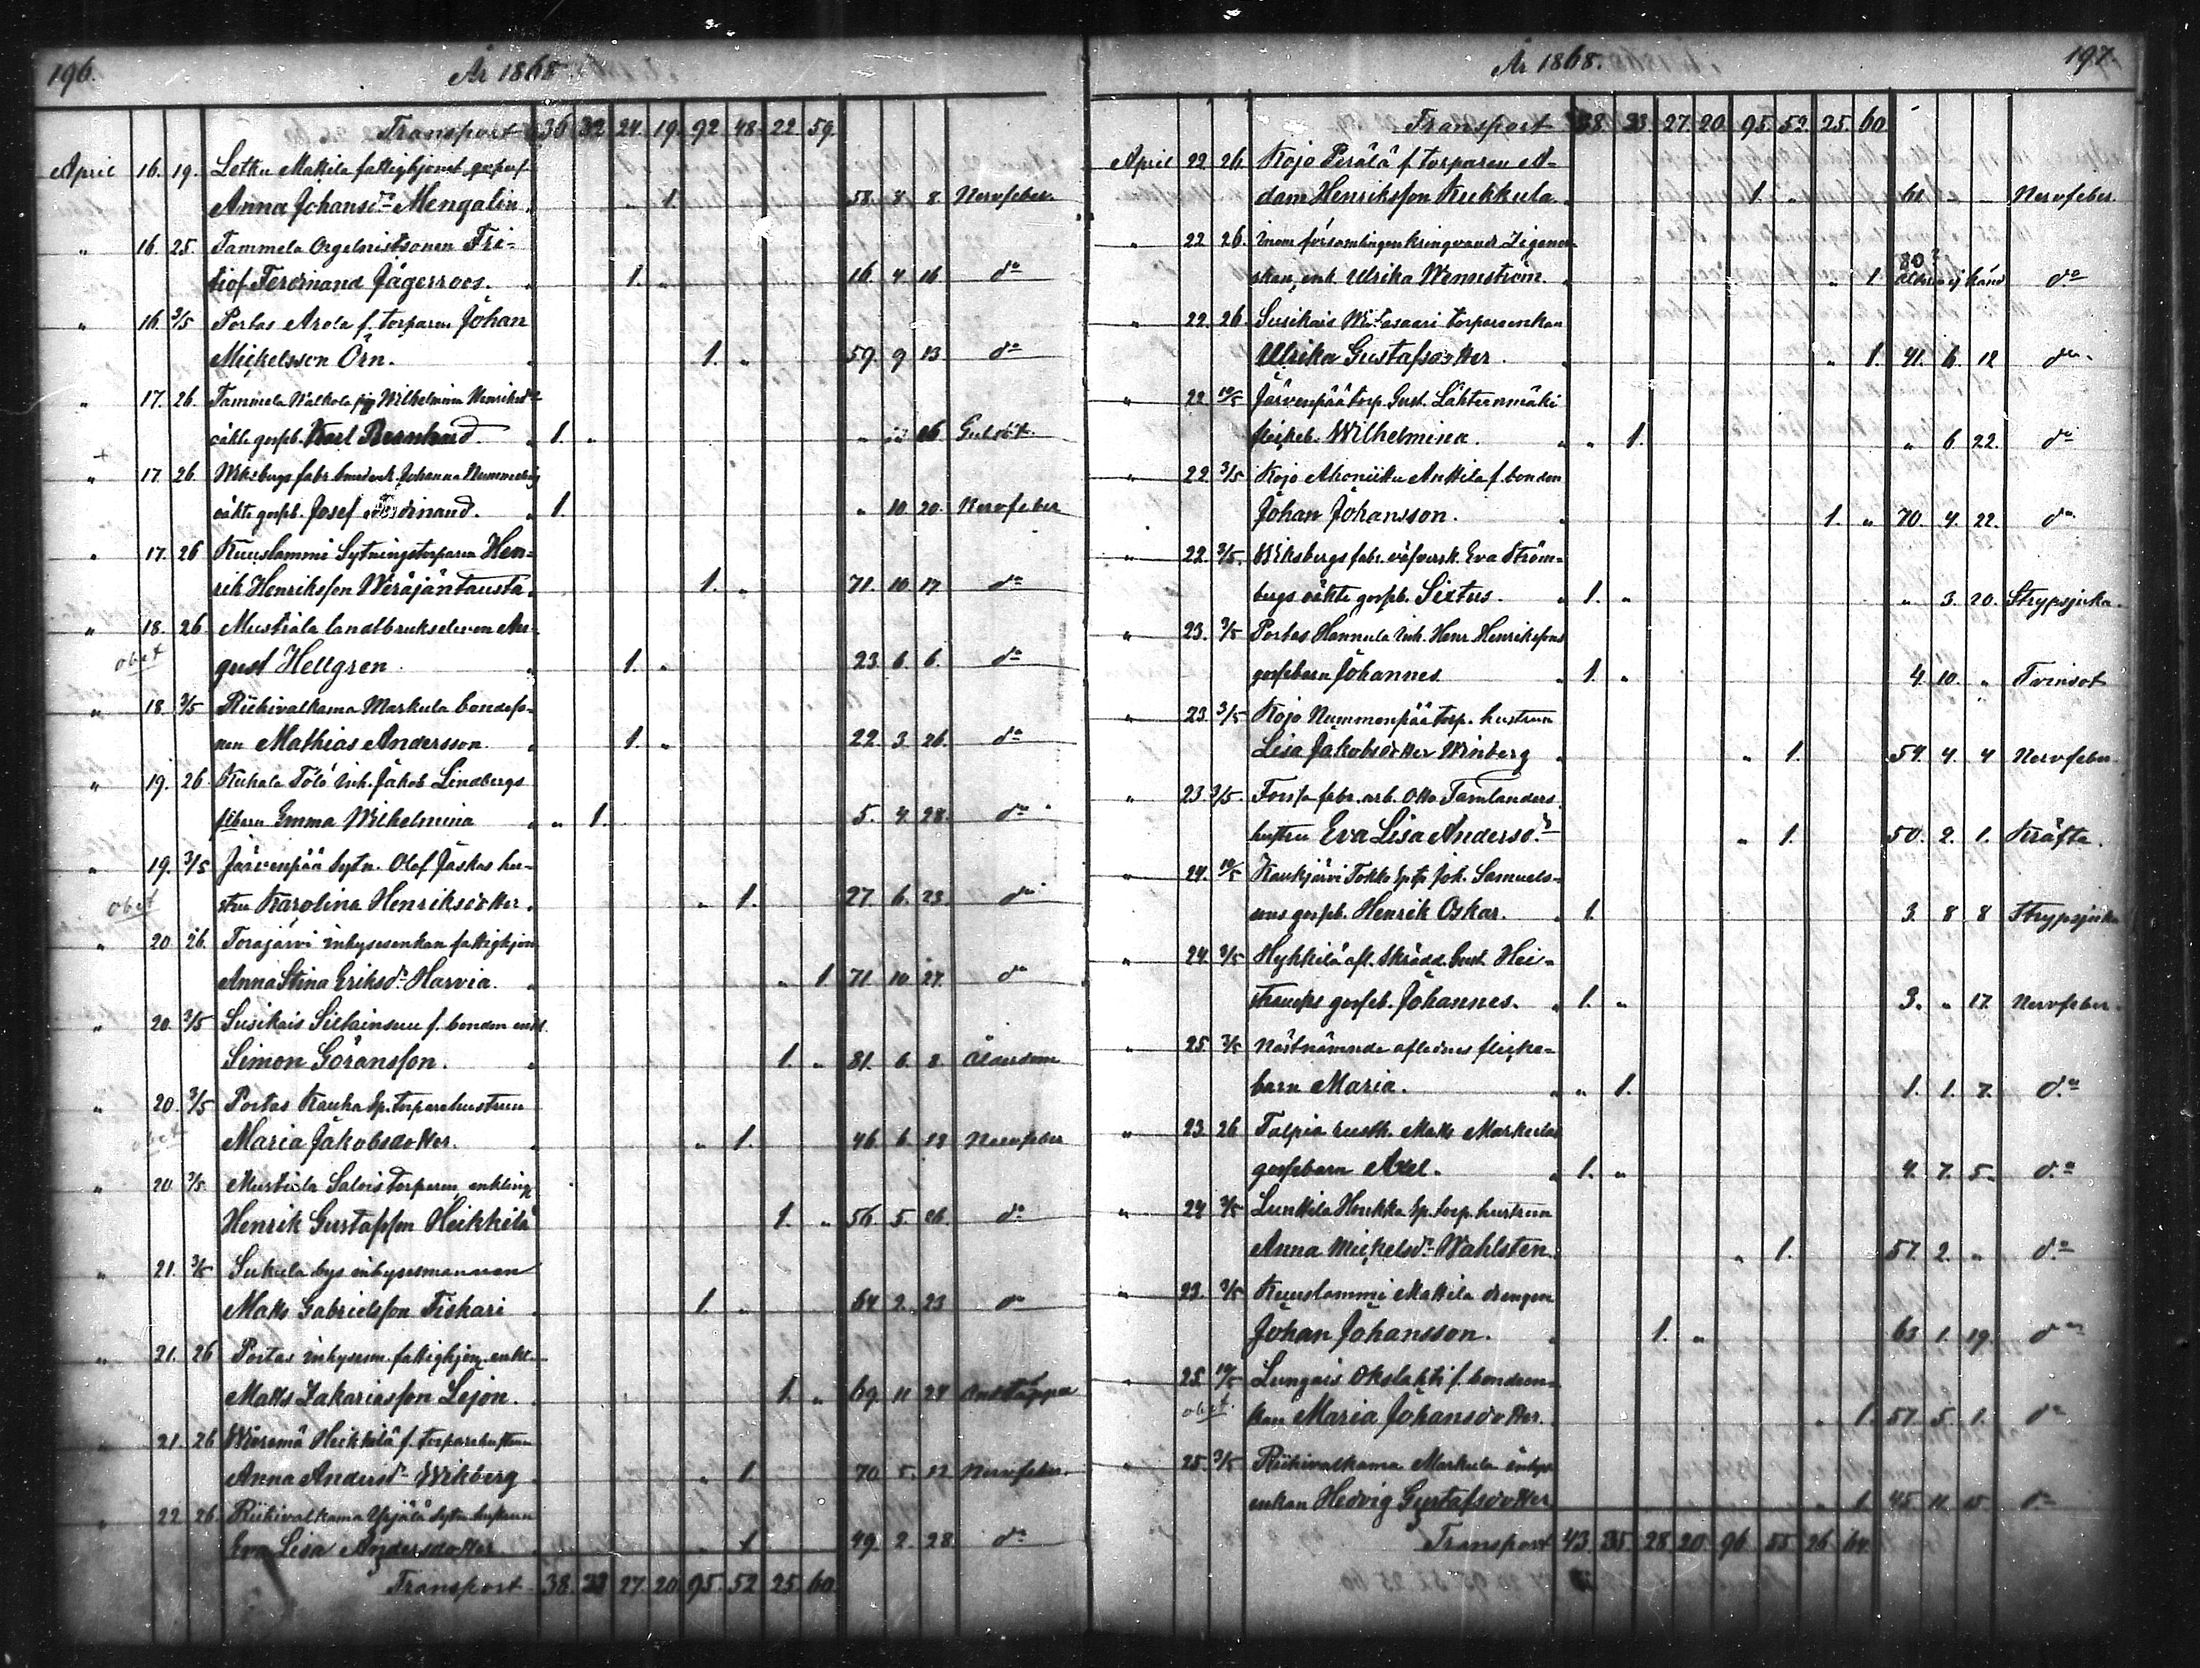 196. År 1868
Transport 36. 32 24. 19. 92 48. 22. 59.
April 16. 19. Lethu Mattila fattighjonet
Anna Johansdr Mengalin. 1. 58. 8. 8 Nervfeber
" 16. 25. Tammela Orgelnistsonen Fri-
tiof Ferdinand Jägerroos. 1. " 16. 4. 16. do
" 16 3/5 Portas Arola f. torparen Johan
Mickelsson Örn. 1. " 59. 9 13 do
" 17. 26. Tammela pig Wilhelmina Henriksdr
oäkta gossb. Karl Bernhard. 1. " " 16 Gulsot.
" 17. 26 Wiksbergs fabr. Johanna
oäkta gossb. Josef Ferdinand. 1. " 10 20. Nervfeber
" 17. 26 Kuuslammi Sytningstorparen Hen-
rik Henriksson Weräjäntausta. 1. " 71. 10. 17. do
" 18. 26. Mustiala landtbrukseleven Au-
obet gust Hellgren. 1. " 23. 6. 6. do
" 18. 3/5 Riihivalkama Markula bondeso-
nen Mathias Andersson 1. " 22. 3. 26. do
" 19. 26 Kuhala Tölö inh. Jakob Lindbergs
flbarn Emma Wilhelmina " 1. 5. 4. 28. do
" 19. 3/5 Järvenpää Sytn. Olof Jäskas hu-
obet stru Karolina Henriksdotter. " 1. 27. 6. 23. do
" 20. 26. Torajärvi inhysesenkan fattighjon
Anna Stina Eriksdr Harvia. " 1 71. 10. 27. do
" 20. 3/5 Susikais f. bonden enkl.
Simon Göransson. 1. " 81. 6. 2. Ålderdom
" 20. 3/5 Portas Kauha Sp. torparehustrun
obet Maria Jakobsdotter. " 1. 46. 6. 18 Nervfeber
" 20 3/5 Mustiala Salois torparen, enkling
Henrik Gustafsson Heikkilä 1. " 56. 5. 26. do
" 21. 3/5 Sukula bys inhysesmannen
Matts Gabrielsson Fiskari 1. " 64 2. 23 do
" 21. 26 Portas inhysesm. fattighjon, enkl.
Matts Zakariasson Lejon. 1. " 69. 11 24 Andtäppa
" 21. 26 Wieremä Heikkilä f. torparehustrun
Anna Andersdr Wikberg " 1. 70. 5. 12 Nervfeber.
" 22 26. Riihivalkama Yrjälä Sytn. hustrun
Eva Lisa Andersdotter " 1 49. 2. 28 do
Transport 38. 33 27. 20. 95. 52 25. 60.
År 1868. 197.
Transport 38. 33. 27. 20. 95. 52. 25. 60
April 22 26. Kojo Perälä f. torparen A-
dam Henriksson Kukkula. 1. " 61. " " Nervfeber.
" 22 26. Inom församlingen kringvandr. Zigenar-
skan, enk. Ulrika Wennström. " 1. 80? Åldern ej känd do
" 22. 26. Susikais torpareenkan
Ulrika Gustafsdotter. " 1. 41. 6. 12 do
" 22. 10/5 Järvenpää torp. Gust. Lähteenmäki
flickeb. Wilhelmina. " 1. " 6 22. do
" 22 3/5 Kojo Ahoniittu Anttila f. bonden
Johan Johansson. 1. " 70. 4. 22. do
" 22. 3/5. Wiksbergs fabr. väfversk. Eva Ström-
bergs oäkta gossb. Sixtus. 1. " " 3. 20. Strypsjuka.
" 23. 3/5 Portas Hannula Inh. Henr. Henrikssons
gossebarn Johannes 1. " 4. 10. " Tvinsot
" 23. 3/5 Kojo Nummenpää torp. hustrun
Lisa Jakobsdotter Winberg " 1. 54. 4. 4 Nervfeber
" 23 3/5. Forssa fabr. arb. Otto Tamlanders
hustru Eva Lisa Andersdr " 1. 50. 2. 1. Kräfta.
" 24. 10/5 Kaukjärvi Tokko Joh. Samuels-
sons gossb. Henrik Oskar. 1. 3. 8 8 Strypsjuka
" 24. 3/5 Hykkilä afl. Skrädd. Gust. Hei-
gosseb. Johannes. 1. " 3. " 17. Nervfeber.
" 25 3/5 Nästnämnde aflednes flicke-
barn Maria. " 1. 1. 1. 7. do
" 23 26 Talpia rusth. Matts Markulas
gossebarn Axel. 1. " 4. 7. 5. do
" 24 3/5 Lunttila Houkka Sp. torp. hustrun
Anna Mickelsdr Wahlsten. " 1. 57 2. " do
" 23. 3/5 Kuuslammi Mattila drengen
Johan Johansson. 1. " 63 1. 19. do
" 25. 10/5 Lungais Okslahti f. bondeen-
obet. kan Maria Johansdotter. " 1. 57. 5. 1. do
" 25. 3/5 Riihivalkama Markula inhys.
enkan Hedvig Gustafsdotter " 1. 45. 11. 15. do
Transport 43. 35. 28. 20. 96. 55. 26. 64.